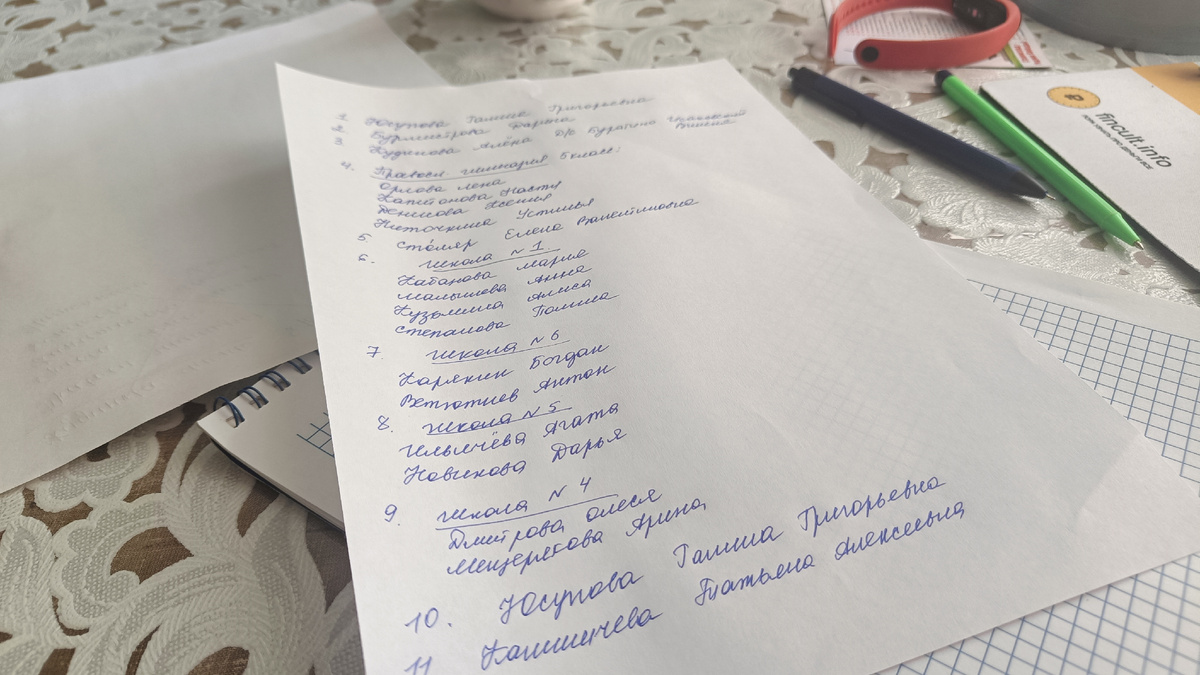 1. Юсупова Галина Григорьевна
2. Бурмистрова Дарья
3. Кудинова Алёна Д/с Буратино
4. Правосл. гимназия 8 класс:
Орлова Лена
Капитонова Настя
Денисова Ксения
Ниточкина Устинья
5. Столяр Елена Валентиновна
6. Школа №1
Кабанова Мария
Малышева Анна
Кузьмина Алиса
Степанова Полина
7. Школа №6
Карякин Богдан
Ветютнев Антон
8. Школа №5
Ильичёва Агата
Новикова Дарья
9. Школа №4
Дмитрова Олеся
Мещерякова Арина
10. Юсупова Галина Григорьевна
11 Татьяна Алексеевна
fincult.info